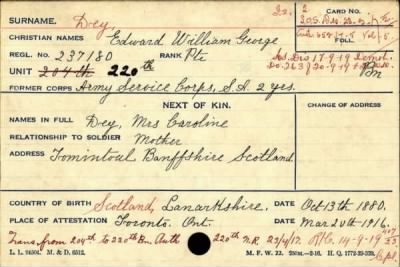 SURNAME. Dey 2. CARD NO. 2
CHRISTIAN NAMES Edward William George
REGL. NO. 237180 RANK Pte FOLL.
UNIT 204th 220th
FORMER CORPS Army Service Corps, S.A. 2 yrs.
NEXT OF KIN. CHANGE OF ADDRESS
NAMES IN FULL Dey, Mrs Caroline
RELATIONSHIP TO SOLDIER Mother
ADDRESS Tomintoul Banffshire Scotland
COUNTRY OF BIRTH Scotland, Lanarkshire. DATE Oct 13th 1880.
PLACE OF ATTESTATION Toronto. Ont. DATE Mar 20th 1916.
Trans. from 204th to 220th Bn. Auth 220th N.R. 23/4/17. 14-9-19
L. L. M. & D. 6512. M. F. W. 22. H. Q. 1772-39-339.